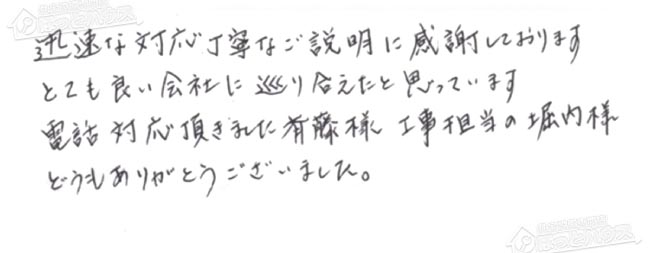 迅速な対応丁寧なご説明に感謝しております
とても良い会社に巡り合えたと思っています
電話対応頂きました斉藤様 工事担当の堀内様
どうもありがとうございました。